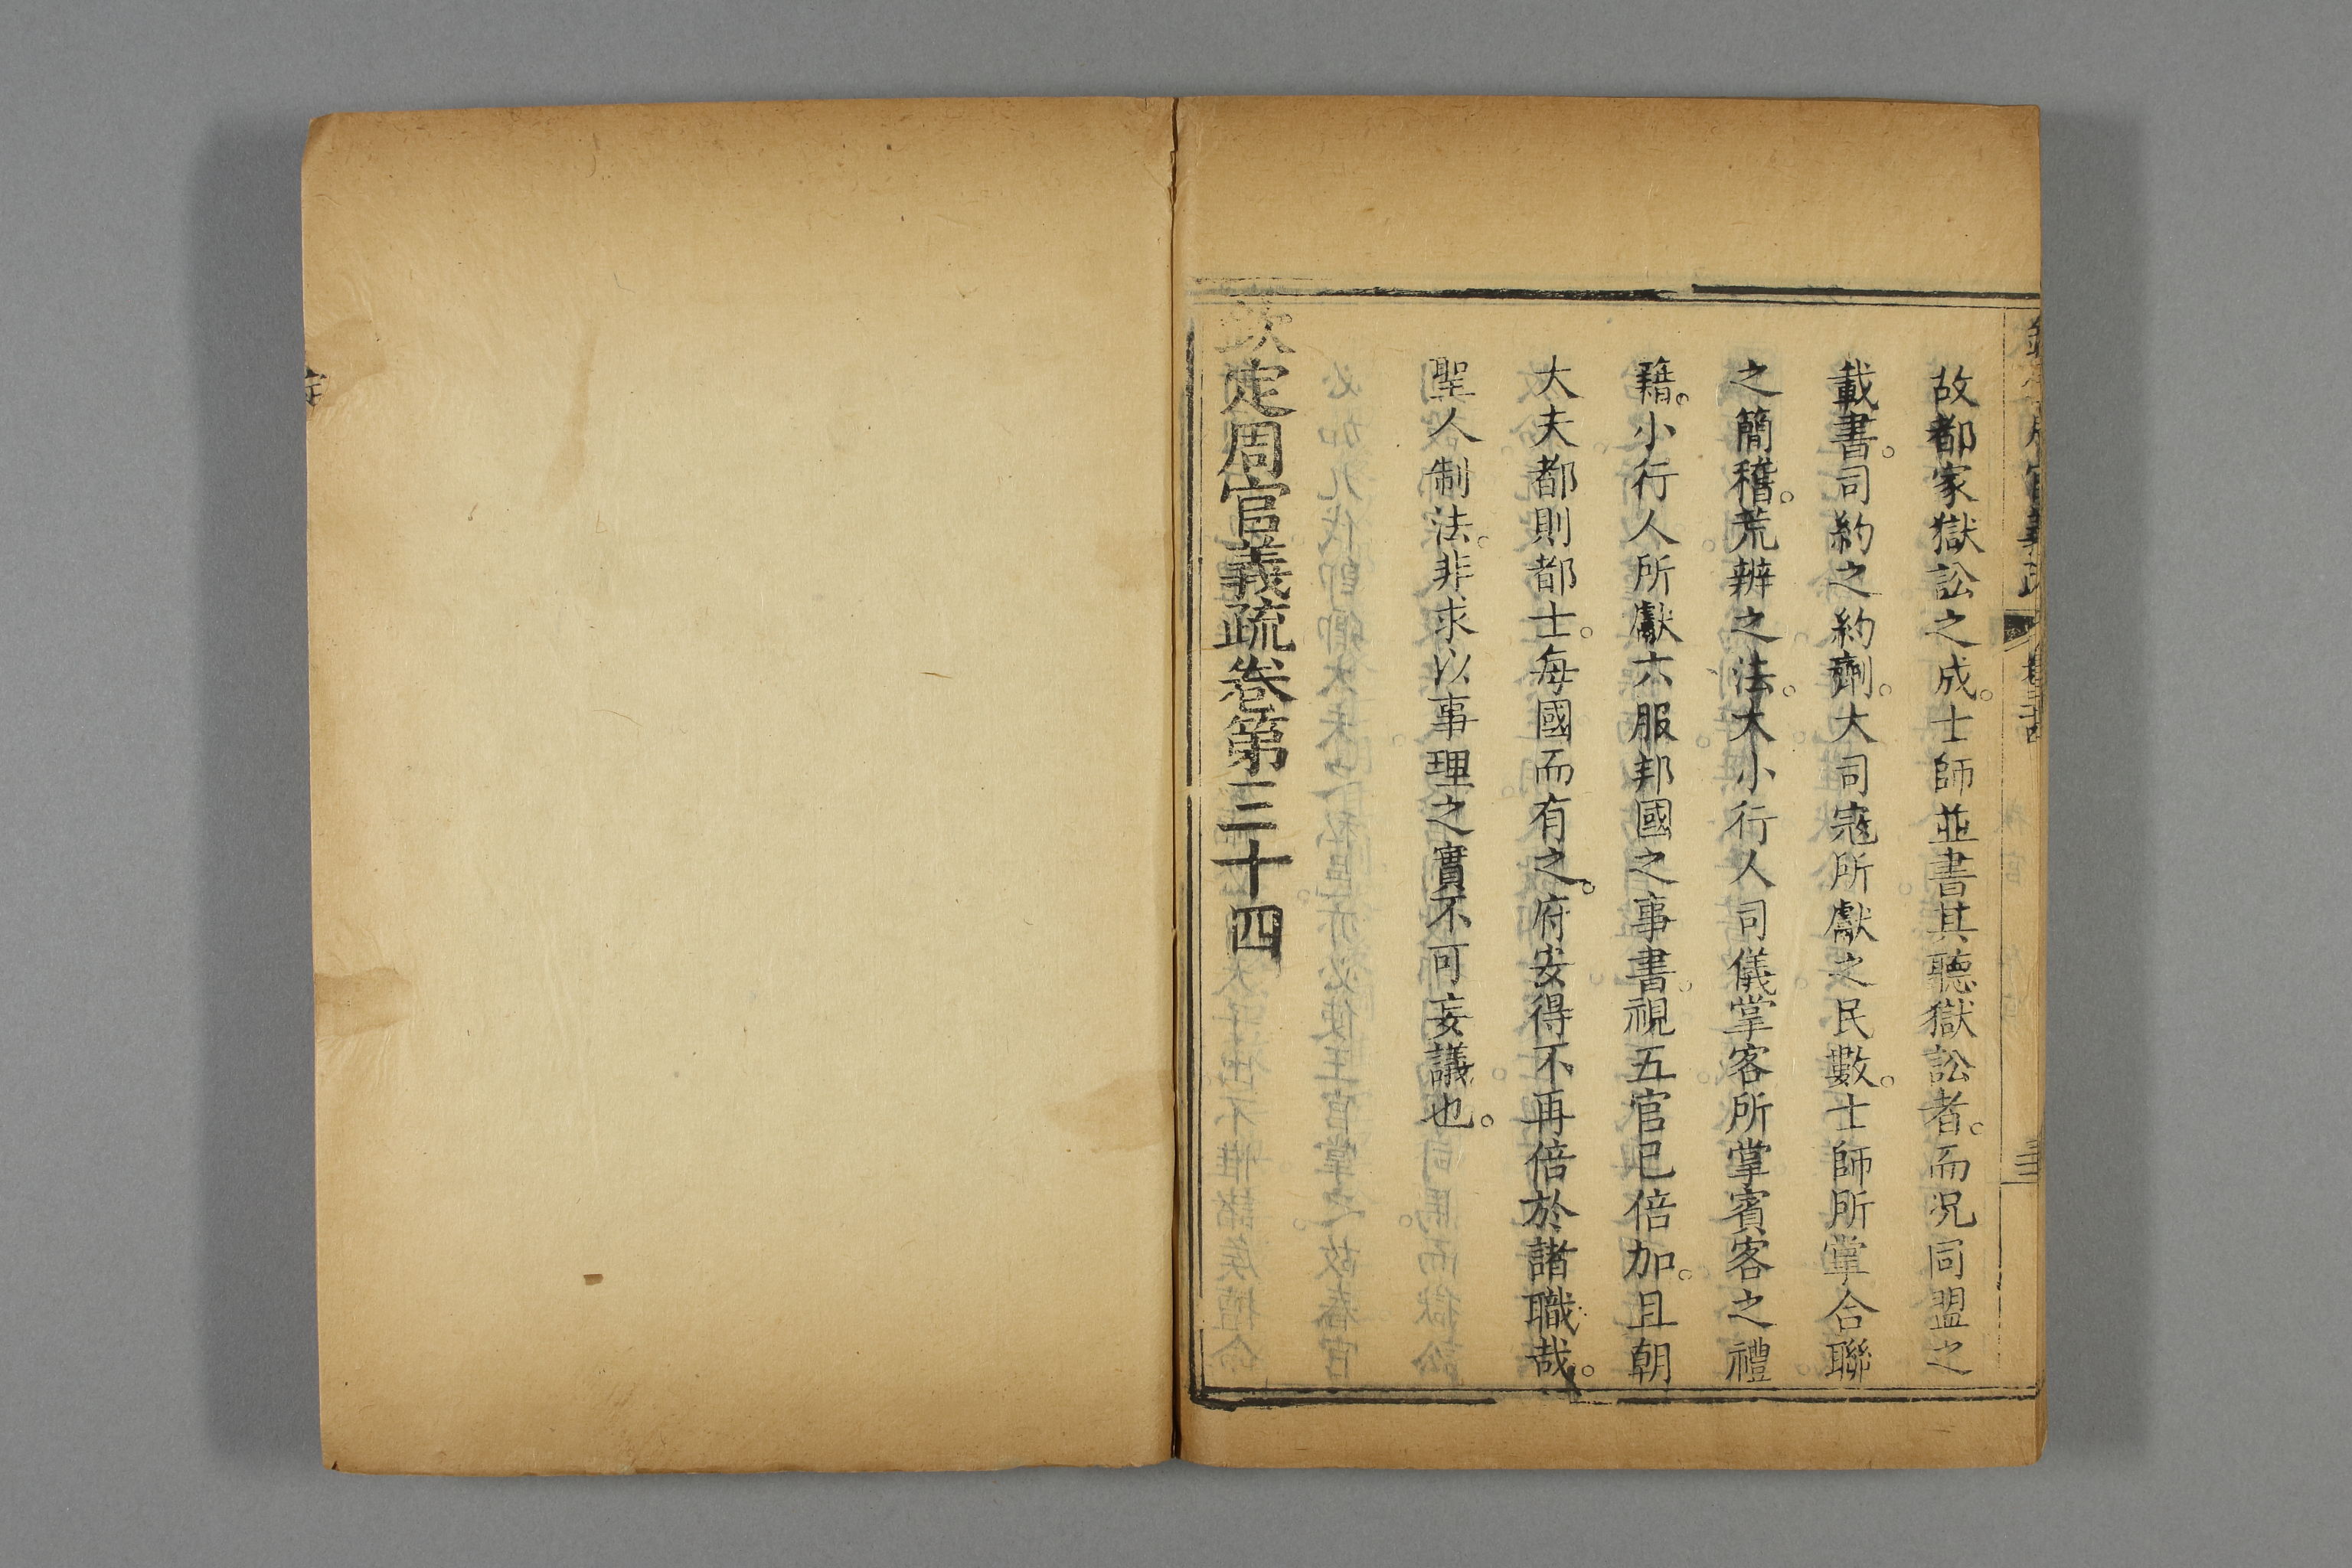 故都家獄訟之成。士師並書其聽獄訟者。而況同盟之
載書。司約之約劑。大司寇所獻之民數。士師所掌合聯
之簡稽。荒辨之法。大小行人司儀掌客所掌賓客之禮
籍。小行人所獻六服邦國之事書。視五官已倍加。且朝
大夫都則都士。每國而有之。府安得不再倍於諸職哉。
聖人制法。非求以事理之實不可妄議也。
欽定周官義疏卷第三十四